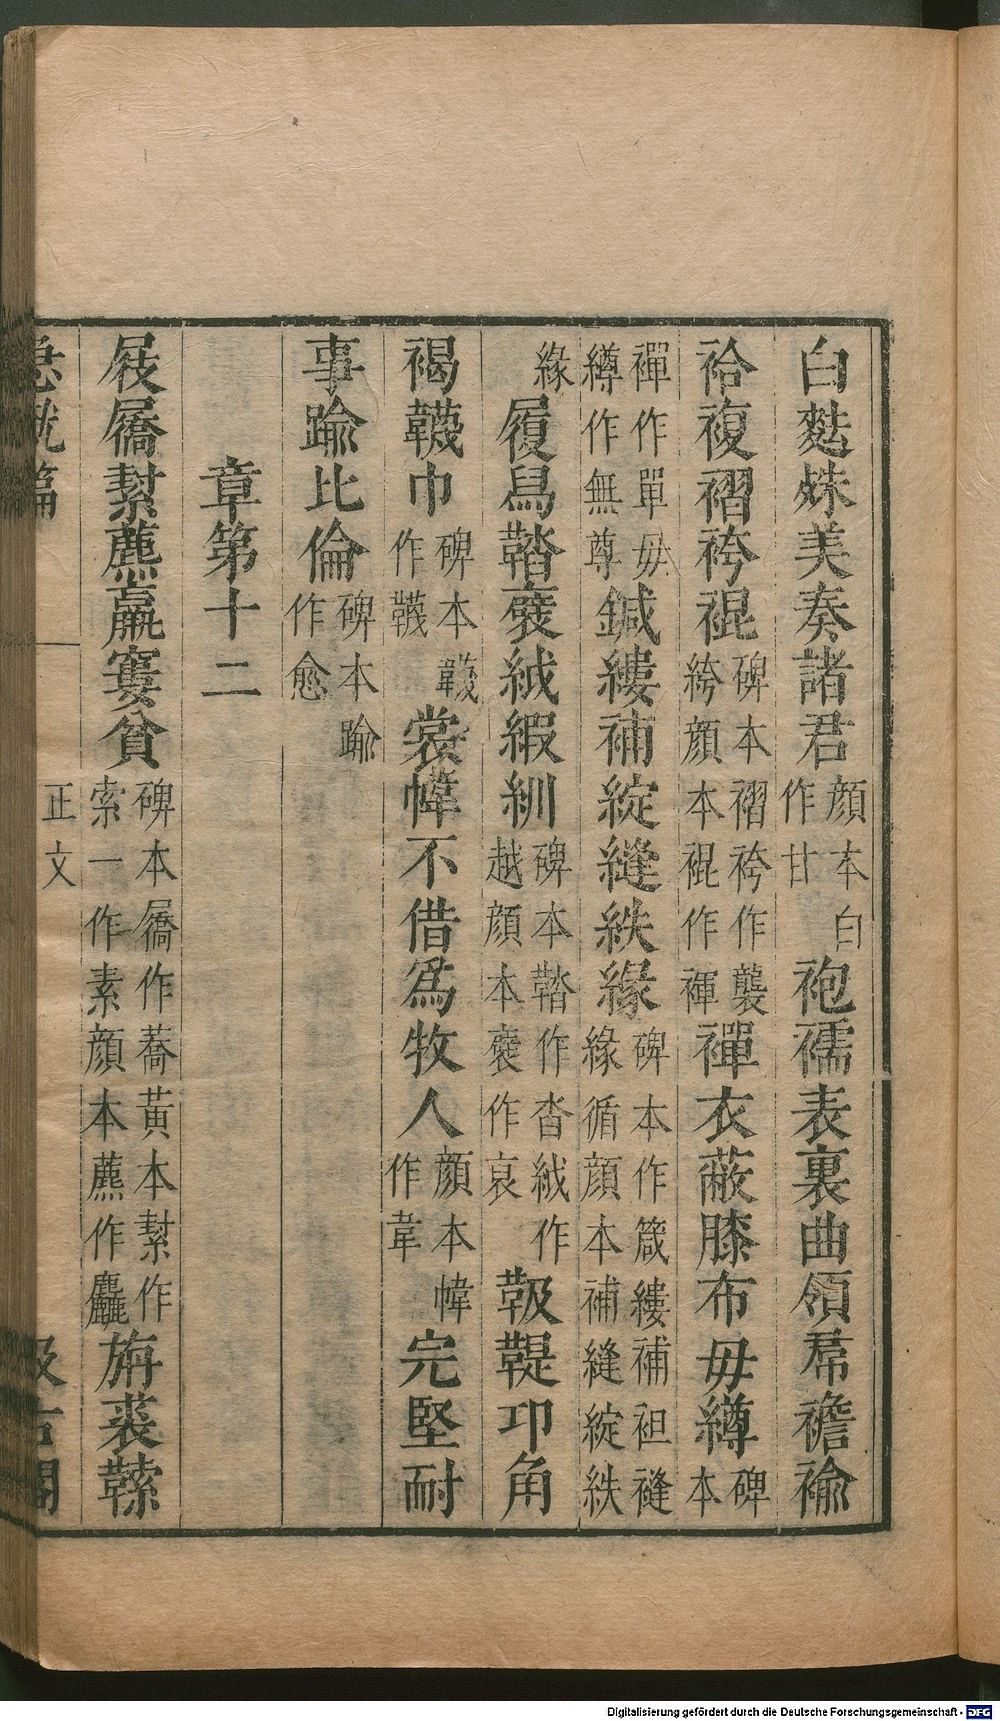 白䴬姝美奏諸君顏本白作甘袍襦表裏曲領帬襜褕
袷複褶袴褌碑本褶袴作襲絝顏本裩作褌襌衣蔽膝布毋繜碑本
襌作單毋繜作無尊鍼縷補綻縫紩緣碑本作箴縷補袒縫緣循顏本補縫綻紩
緣履舄鞜裒絨緞紃碑本鞜作沓絨作越顏本裒作裒靸鞮卬角
褐韈巾碑本韈作韤裳幃不借爲牧人顏本幃作韋完堅耐
事踰比倫碑本踰作愈
章第十二
屐屩䋈麤羸窶貧碑本屩作蕎黃本䋈作索一作素顏本麤作麤旃裘䩲
急就篇 正文 汲古閣
Digitalisierung gefördert durch die Deutsche Forschungsgemeinschaft - DFG